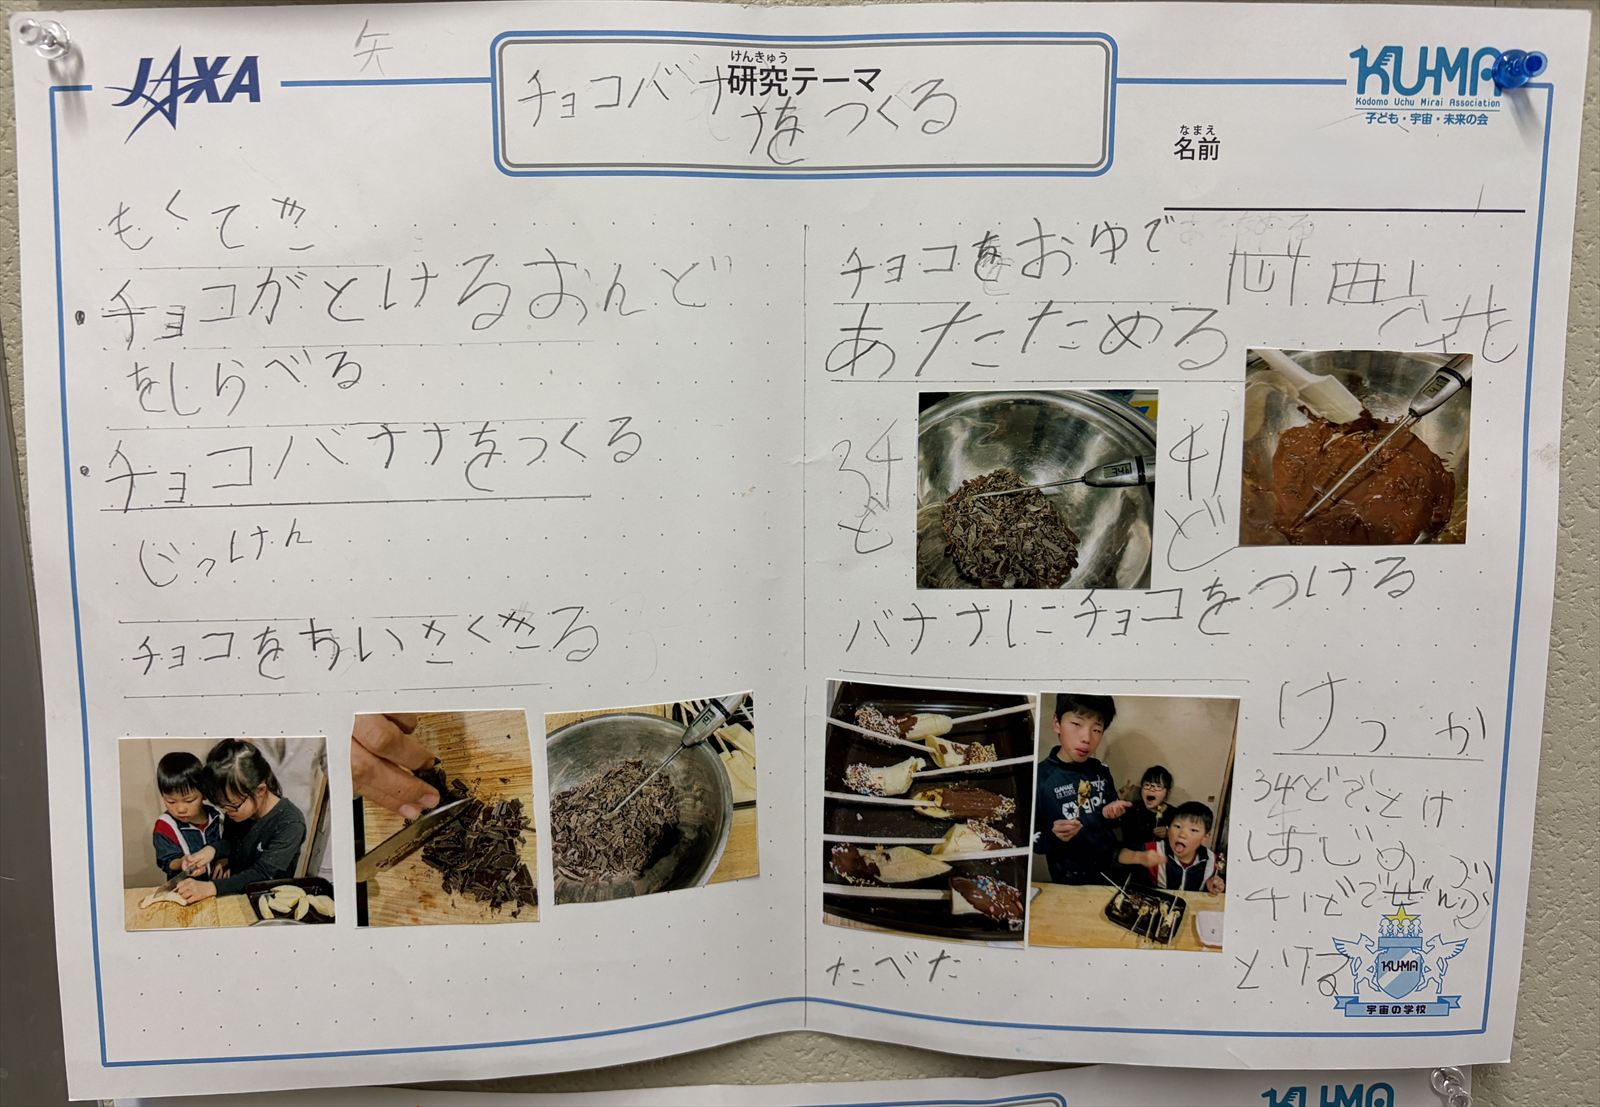 JAXA
矢
けんきゅう
研究テーマ
チョコバナナ
をつくる
KUMA
Kodomo Uchu Mirai Association
子ども・宇宙・未来の会
なまえ
名前
もくてき
・チョコがとけるおんど
をしらべる
・チョコバナナをつくる
じっけん
チョコをちいさくきる
チョコをおゆで
あたためる
34
ど
41
ど
バナナにチョコをつける
たべた
けっか
34どでとけ
はじめ
41どでぜんぶ
とける
KUMA
宇宙の学校
KUMA